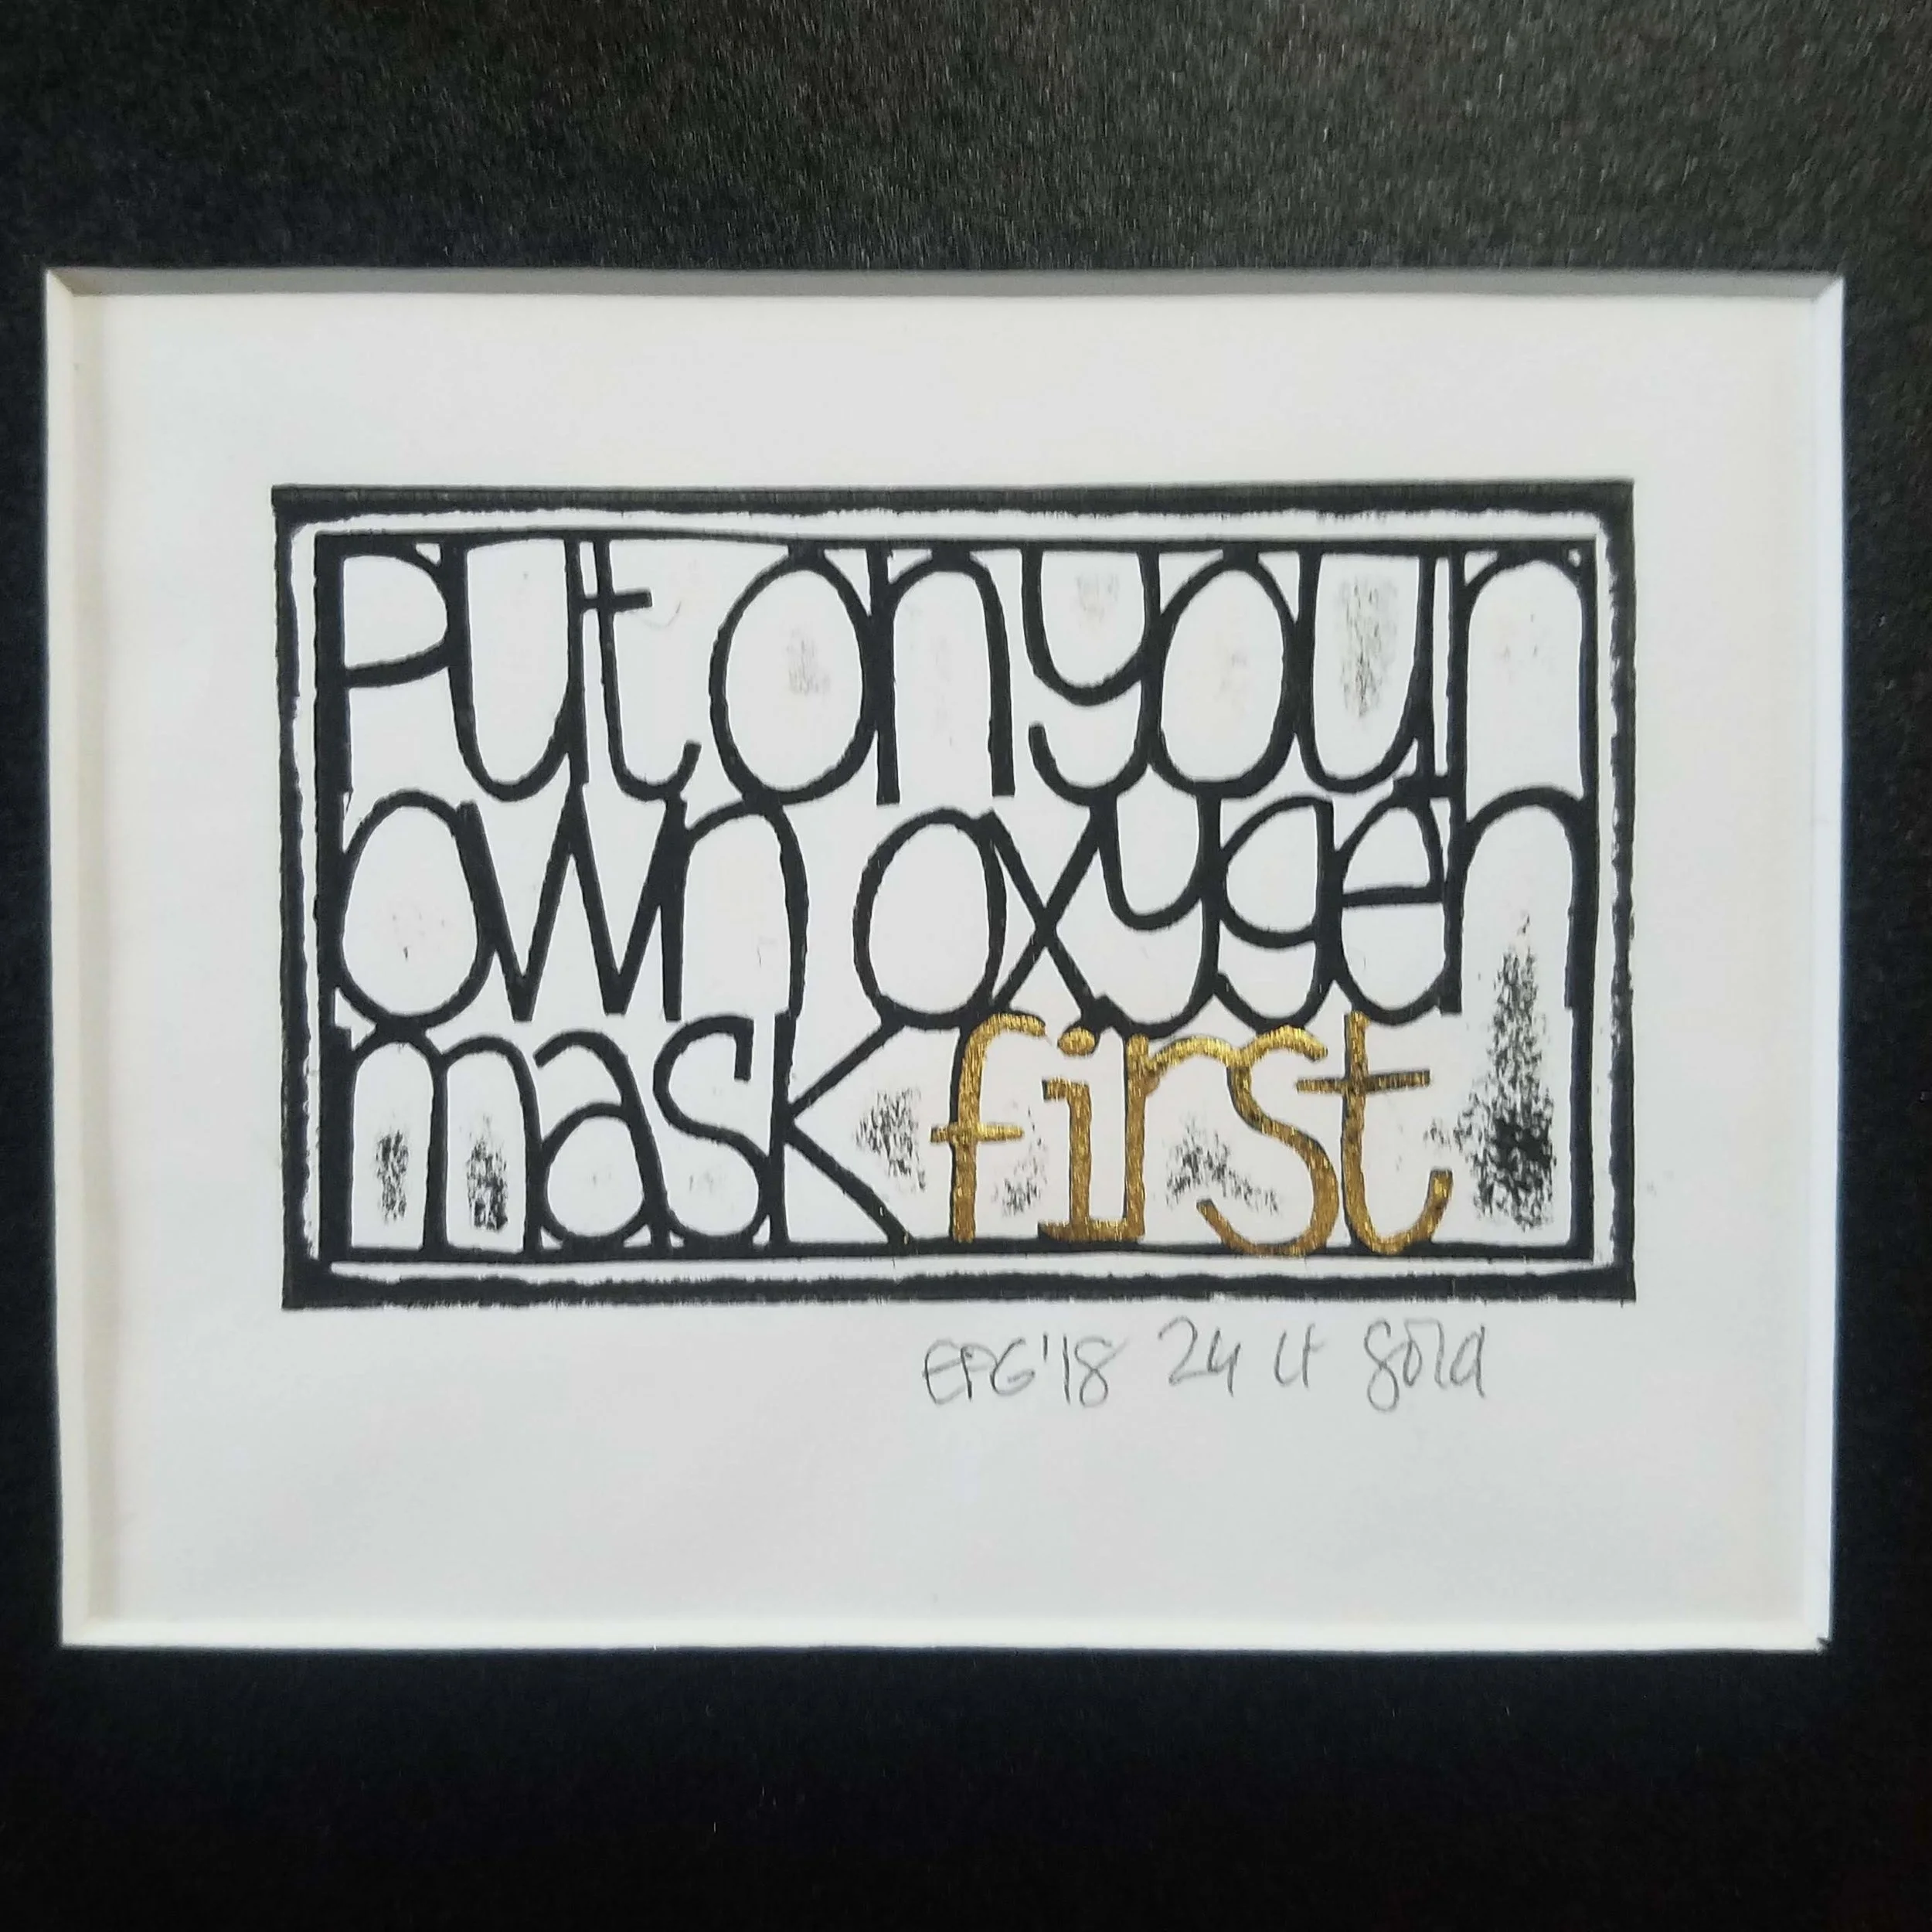 Put on your
own oxygen
mask first
EPG'18 24 ct gold